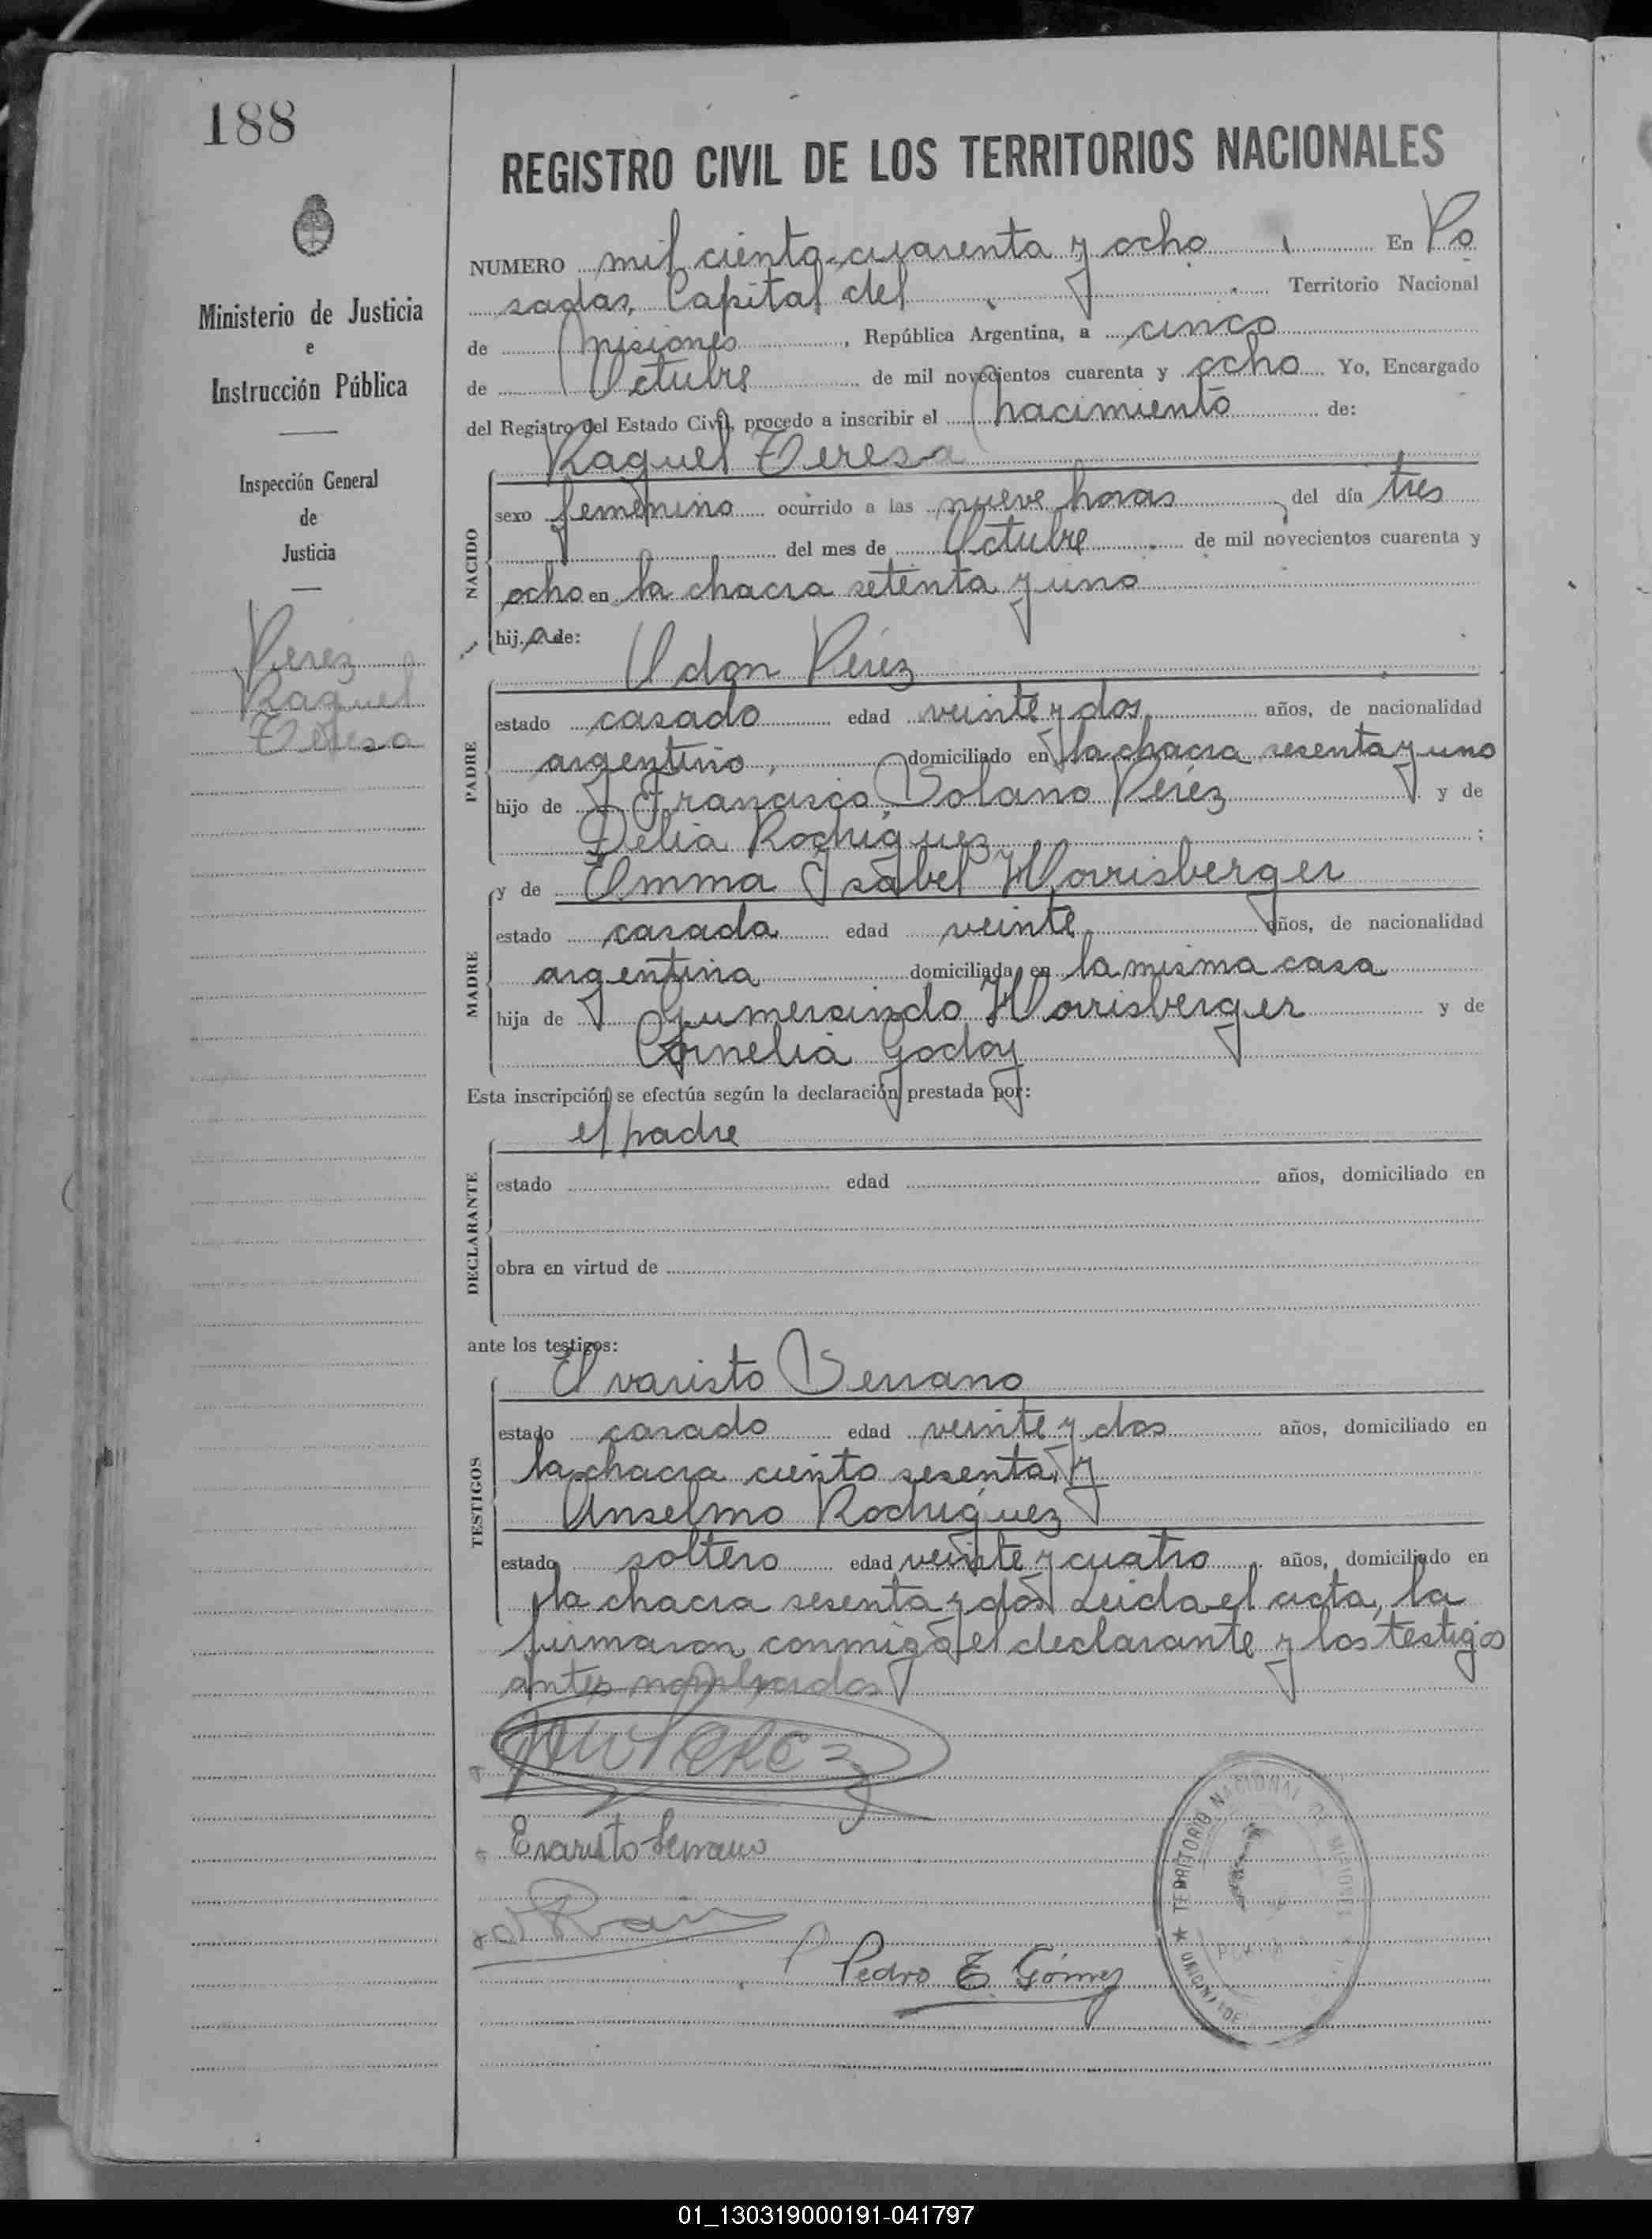 188
REGISTRO CIVIL DE LOS TERRITORIOS NACIONALES
Ministerio de Justicia
e
Instrucción Pública
Inspección General
de
Justicia
Perez
Raquel
Teresa
NUMERO mil ciento cuarenta y ocho En Po
sadas, Capital del Territorio Nacional
de Misiones, República Argentina, a cinco
de Octubre de mil novecientos cuarenta y ocho Yo, Encargado
del Registro del Estado Civil, procedo a inscribir el nacimiento de:
Raquel Teresa
NACIDO
sexo femenino ocurrido a las nueve horas del día tres
del mes de Octubre de mil novecientos cuarenta y
ocho en la chacra setenta y uno
hija de:
Odon Pérez
PADRE
estado casado edad veinte y dos años, de nacionalidad
argentino, domiciliado en la chacra sesenta y uno
hijo de Francisco Solano Pérez y de
Delia Rodríguez ;
y de Emma Isabel Horrisberger
MADRE
estado casada edad veinte años, de nacionalidad
argentina domiciliada en la misma casa
hija de Gumersindo Horrisberger y de
Cornelia Godoy
Esta inscripción se efectúa según la declaración prestada por:
el padre
DECLARANTE
estado edad años, domiciliado en
obra en virtud de
ante los testigos:
Evaristo Serrano
TESTIGOS
estado casado edad veinte y dos años, domiciliado en
la chacra ciento sesenta y
Anselmo Rodríguez
estado soltero edad veinte y cuatro años, domiciliado en
la chacra sesenta y dos Leida el acta, la
firmaron conmigo el declarante y los testigos
antes nombrados
Perez
Evaristo Serrano
Pedro E. Gómez
TERRITORIO NACIONAL DE MISIONES
01_130319000191-041797